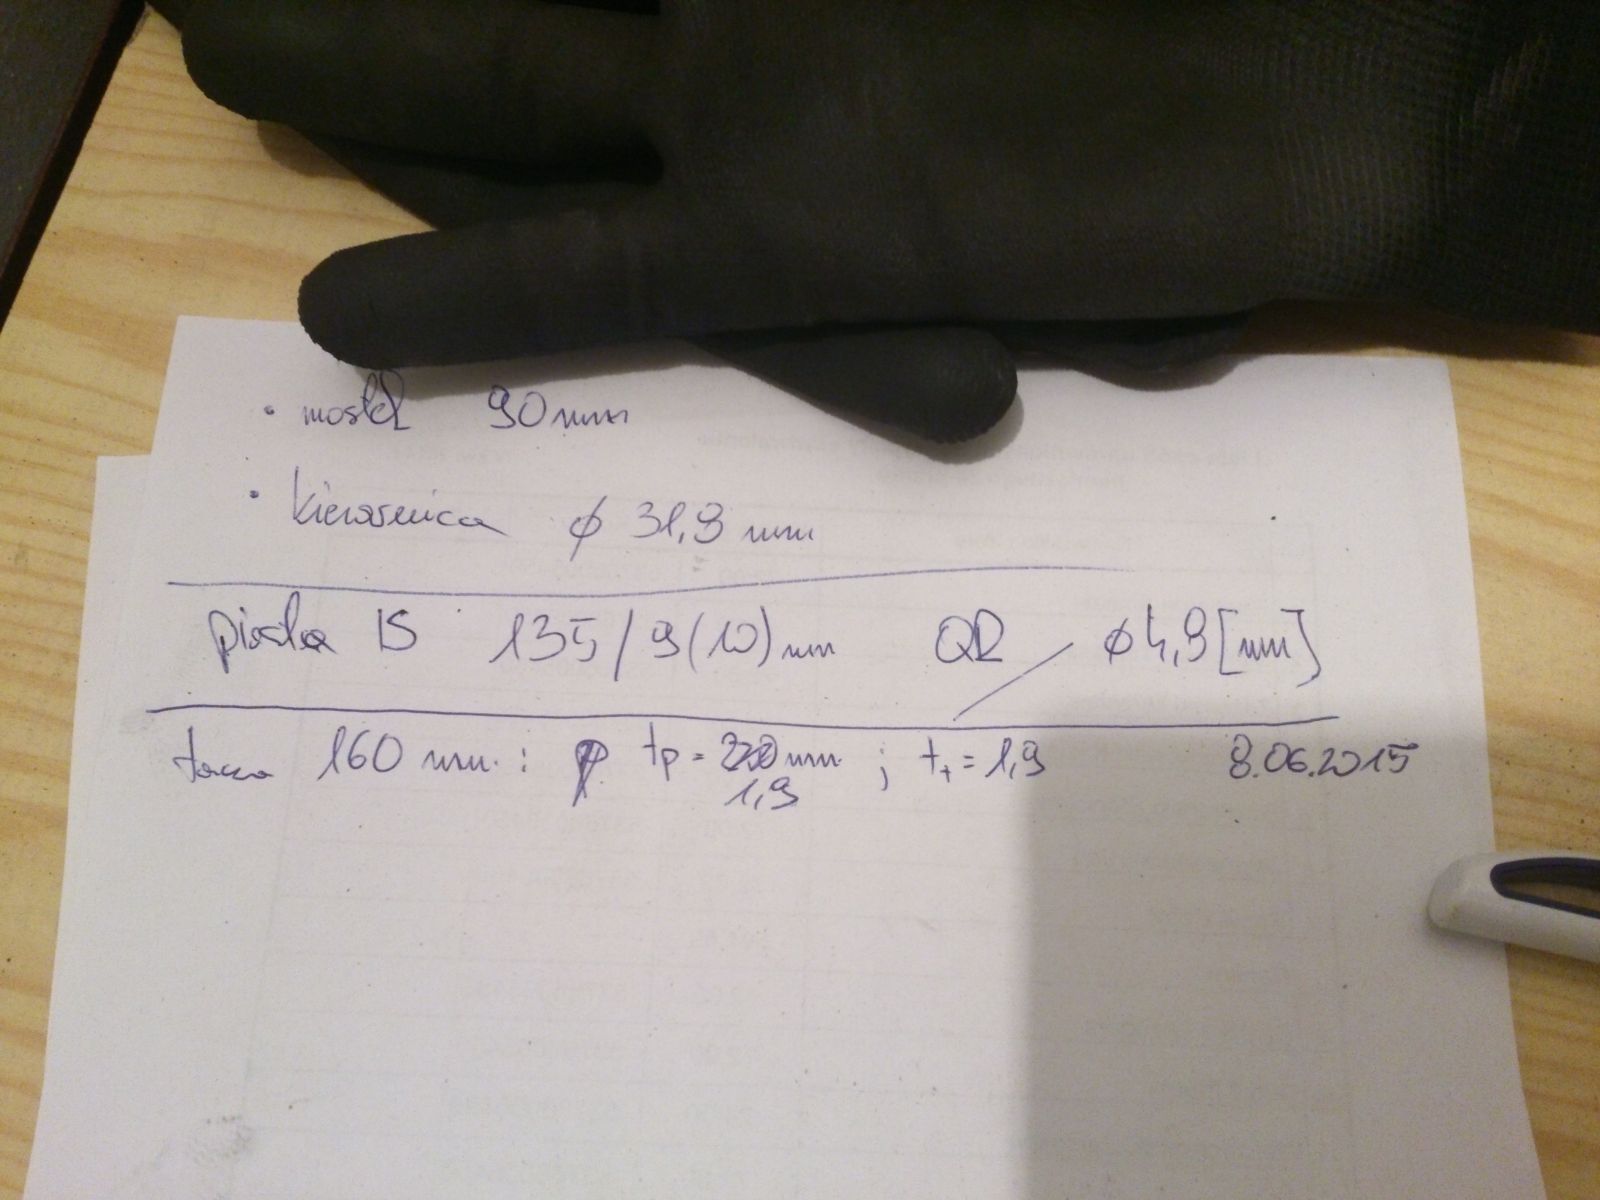 • mostek 90mm
• kierownica ϕ 31,9 mm
piasta IS 135/9(10)mm QR / ϕ4,9[mm]
tarcza 160 mm. : tp = mm ; tt = 1,9 8.06.2015
1,9